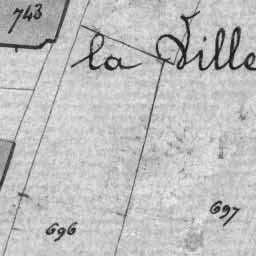 743
la Ville
696
697